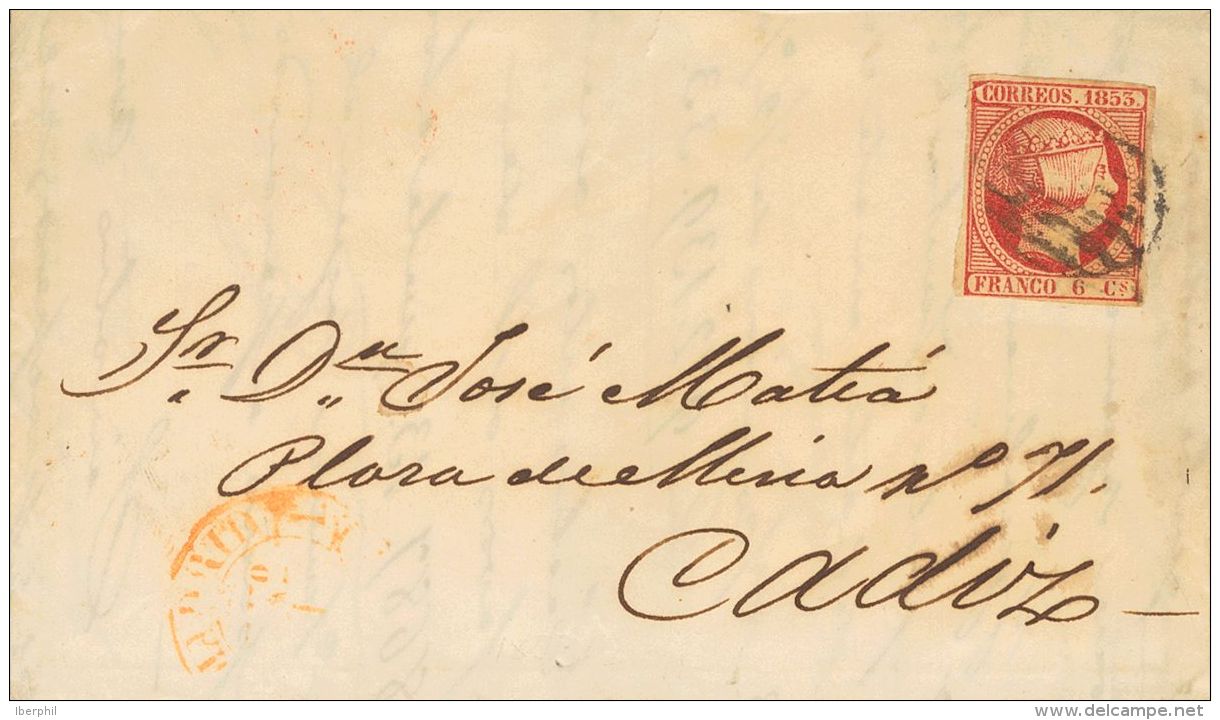 CORREOS. 1853.
FRANCO 6 Cs.
Sr. Dn. José Matiá
Plaza de Mina nº 71.
Cadiz
MADRID
Iberphil
delcampe.net